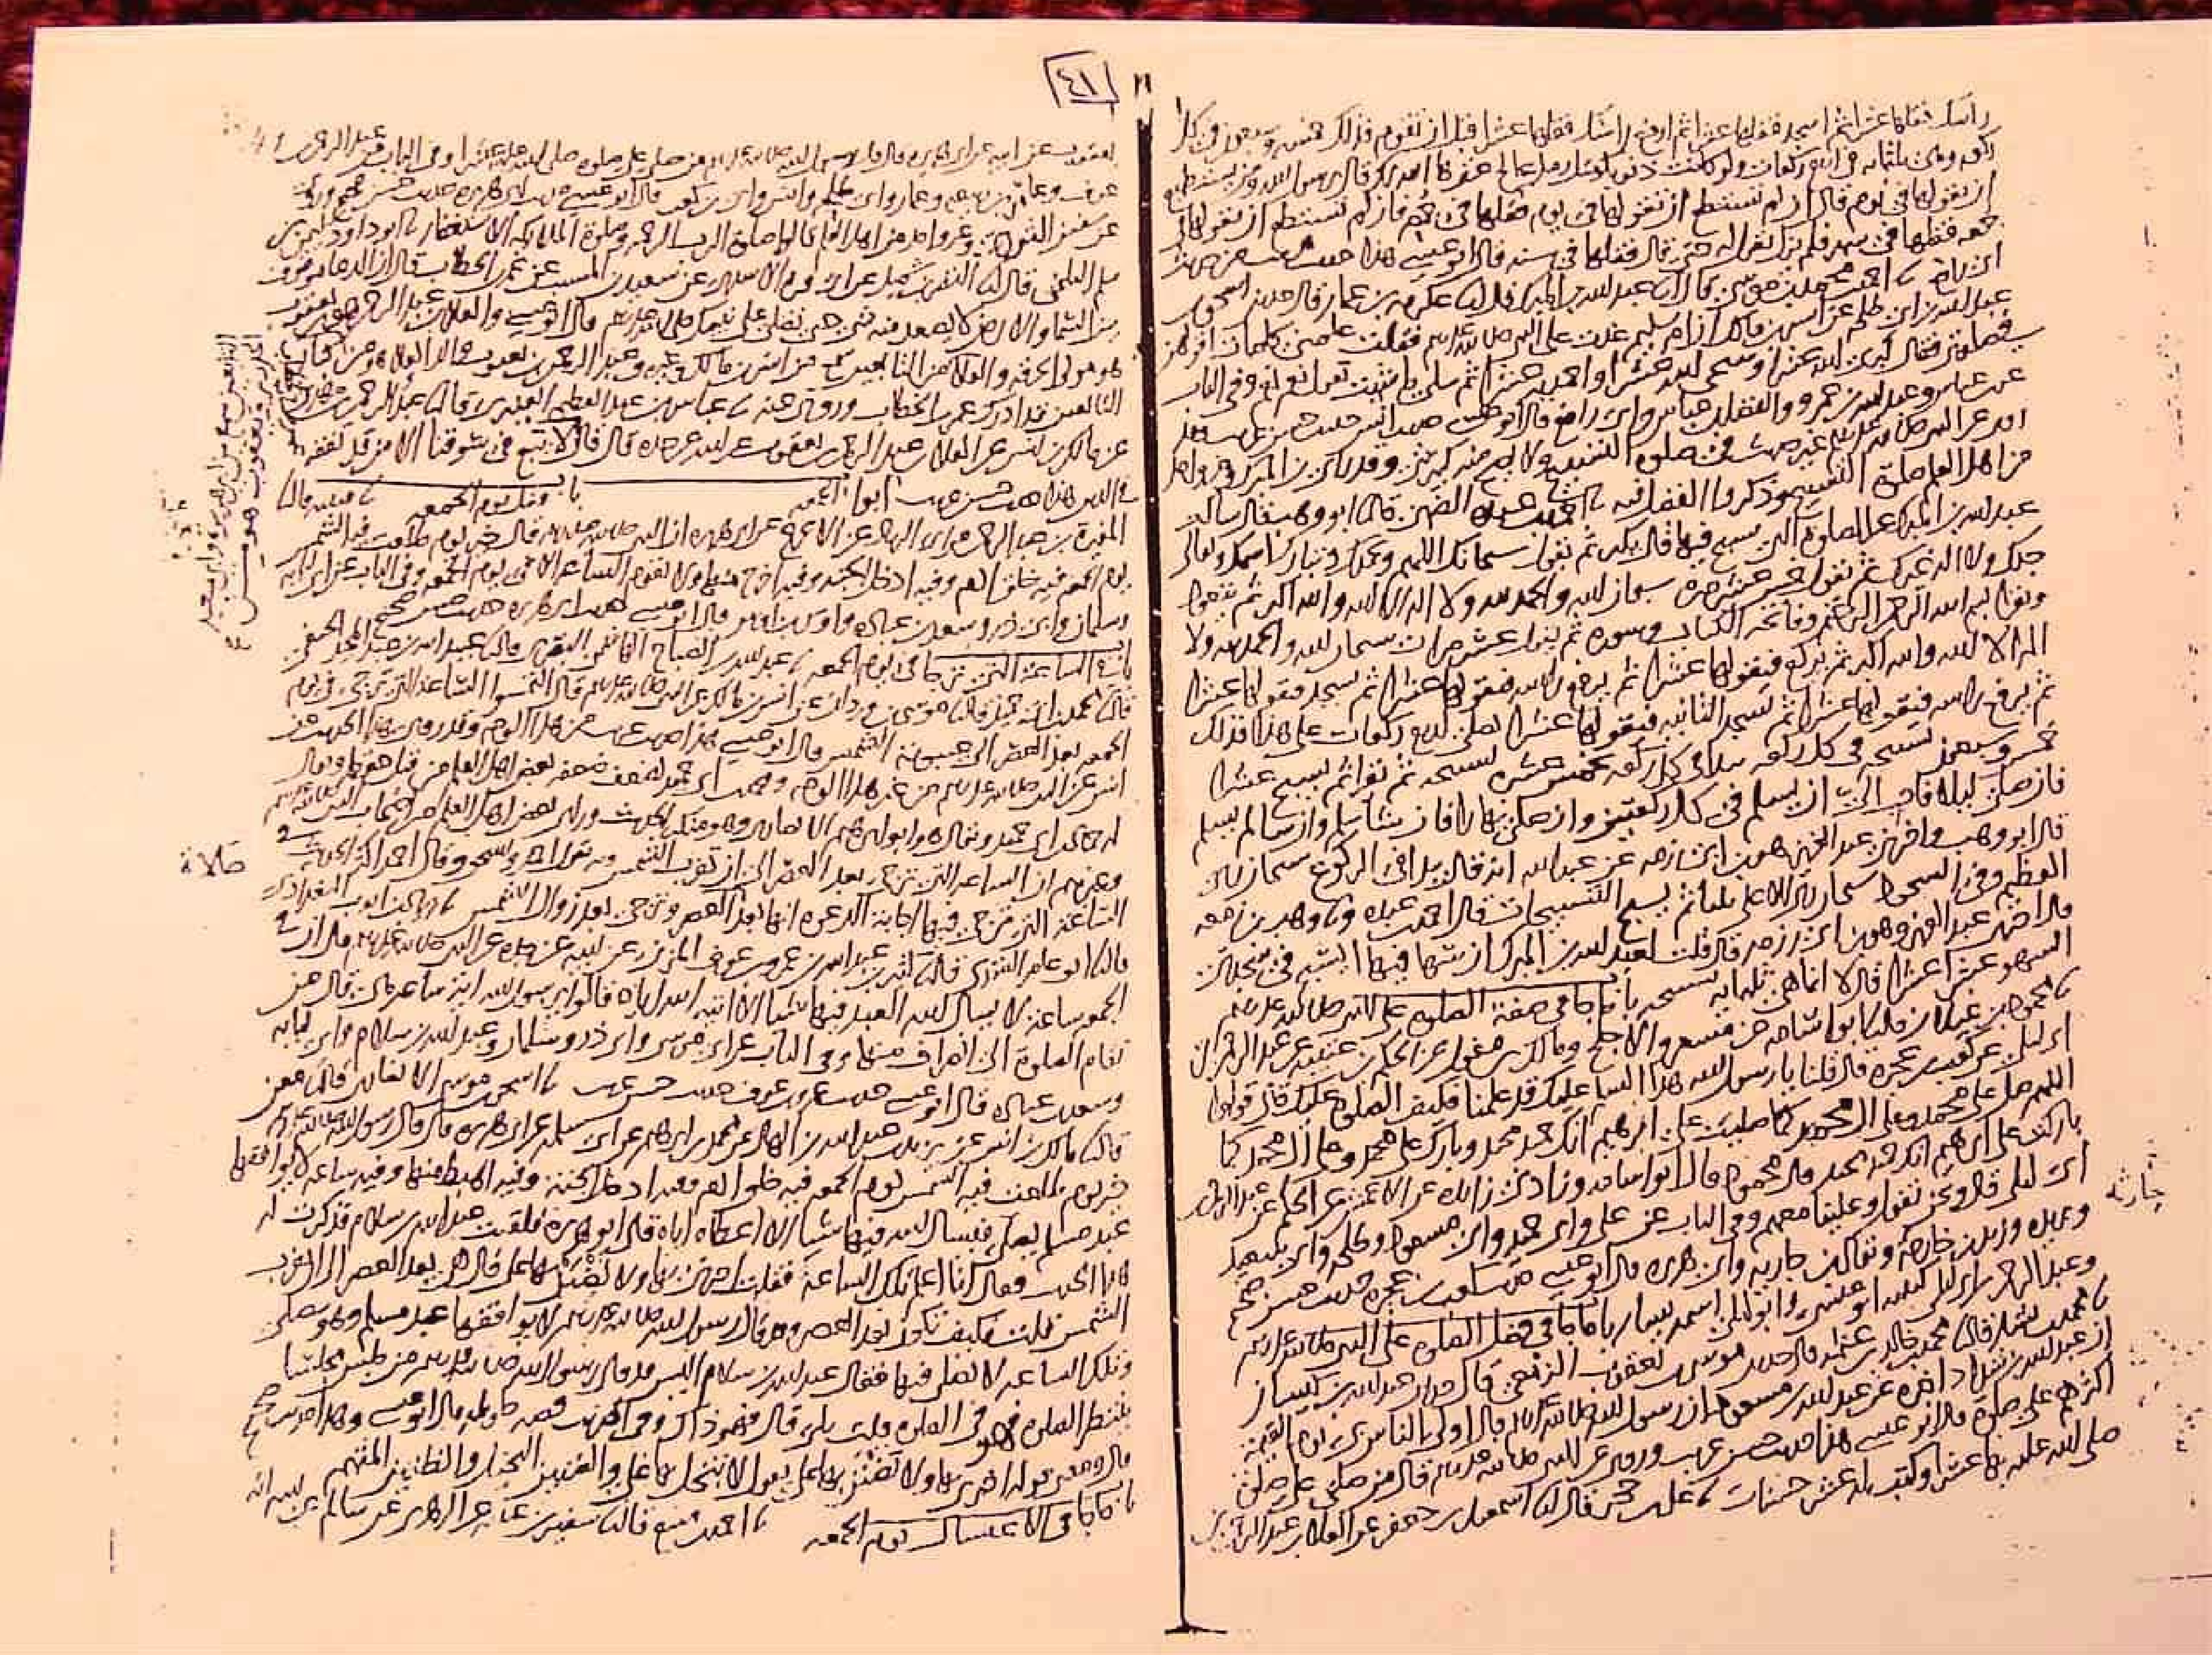 ٤١
راسك فقلها عشرا ثم اسجد فقلها عشرا ثم ارفع راسك فقلها عشرا قبل ان تقوم فذلك خمس وسبعون في كل
ركعه وهي ثلثمايه في اربع ركعات ولو كانت ذنوبك مثل رمل عالج غفرها الله لك قال يرسول الله ومن يستطيع
ان يقولها في يوم قال ان لم تستطع ان تقولها في يوم فقلها في جمعه فان لم تستطع ان تقولها في
جمعه فقلها في شهر فلم يزل يقول له حتى قال فقلها في سنه قال ابو عيسى هذا حديث غريب من حديث
ابي رافع احمد بن محمد بن موسى قال عبد الله بن المبرك قال عكرمه بن عمار قال حدثني اسحق بن
عبد الله بن ابي طلحه عن انس بن مالك ان ام سليم غدت على النبي صلى الله عليه وسلم فقالت علمني كلمات اقولهن
في صلوتي فقال كبري الله عشرا وسبحي الله عشرا واحمديه عشرا ثم سلي ما شئت يقول نعم نعم وفي الباب
عن ابن عباس وعبد الله بن عمرو والفضل بن عباس وابي رافع قال ابو عيسى حديث انس حديث حسن غريب وقد
روي عن النبي صلى الله عليه وسلم غير حديث في صلوه التسبيح ولا يصح منه كبير شي وقد راى ابن المبرك وغير واحد
من اهل العلم صلوة التسبيح وذكروا الفضل فيه احمد بن عبده الضبي قال ابو وهب قال سالت
عبد الله بن المبرك عن الصلوه التي يسبح فيها قال يكبر ثم يقول سبحانك اللهم وبحمدك وتبارك اسمك وتعالى
جدك ولا اله غيرك ثم يقول خمس عشره مره سبحان الله والحمد لله ولا اله الا الله والله اكبر ثم يتعوذ
ويقرا بسم الله الرحمن الرحيم وفاتحه الكتاب وسوره ثم يقول عشر مرات سبحان الله والحمد لله ولا
اله الا الله والله اكبر ثم يركع فيقولها عشرا ثم يرفع راسه فيقولها عشرا ثم يسجد فيقولها عشرا
ثم يرفع راسه فيقولها عشرا ثم يسجد الثانيه فيقولها عشرا يصلي اربع ركعات على هذا فذلك
خمس وسبعون تسبيحه في كل ركعه يبدا في كل ركعه بخمس عشره تسبيحه ثم يقرا ثم يسبح عشرا
فان صلى ليلا فاحب الي ان يسلم في كل ركعتين وان صلى نهارا فان شا سلم وان شا لم يسلم
قال ابو وهب واخبرني عبد العزيز هو ابن ابي رزمه عن عبد الله انه قال يبدا في الركوع سبحان ربي
العظيم وفي السجود سبحان ربي الاعلى ثلثا ثم يسبح التسبيحات قال احمد بن عبده وهب بن زمعه
قال اخبرني عبد العزيز وهو ابن ابي رزمه قال قلت لعبد الله بن المبرك ان سها فيها ايسبح في سجدتي
السهو عشرا عشرا قال لا انما هي ثلثمايه تسبيحه باب ما جا في صفة الصلوه على النبي صلى الله عليه وسلم
محمود بن غيلان قال ابو اسامه عن مسعر والاجلح ومالك بن مغول عن الحكم بن عتيبه عن عبد الرحمن بن
ابي ليلى عن كعب بن عجره قال قلنا يا رسول الله هذا السلام عليك قد علمنا فكيف الصلوه عليك قال قولوا
اللهم صل على محمد وعلى ال محمد كما صليت على ابرهيم انك حميد مجيد وبارك على محمد وعلى ال محمد كما
باركت على ابرهيم انك حميد مجيد قال محمود قال ابو اسامه وزادني زايده عن الاعمش عن الحكم عن عبد الرحمن
ابن ابي ليلى قال ونحن نقول وعلينا معهم وفي الباب عن علي وابي حميد وابي مسعود وطلحه وابي سعيد
وبريده وزيد بن خارجه ويقال ابن جاريه وابي هريره قال ابو عيسى حديث كعب بن عجره حديث حسن صحيح
جارثه
وعبد الرحمن بن ابي ليلى كنيته ابو عيسى وابو ليلى اسمه يسار باب ما جا في فضل الصلوه على النبي صلى الله عليه وسلم
محمد بن بشار قال محمد بن خالد بن عثمه قال حدثني موسى بن يعقوب الزمعي قال حدثني عبد الله بن كيسان
ان عبد الله بن شداد اخبره عن عبد الله بن مسعود ان رسول الله صلى الله عليه وسلم قال اولى الناس بي يوم القيمه
اكثرهم علي صلوة قال ابو عيسى هذا حديث حسن غريب وروي عن النبي صلى الله عليه وسلم قال من صلى علي صلوه
صلى الله عليه بها عشرا وكتب له عشر حسنات علي بن حجر قال اسمعيل بن جعفر عن العلا بن عبد الرحمن
يعقوب عن ابيه عن ابي هريره قال قال رسول الله صلى الله عليه وسلم من صلى علي صلوه صلى الله عليه عشرا وفي الباب عن عبد الرحمن بن
عوف وعامر بن ربيعه وعمار وابي طلحه وانس وابي بن كعب قال ابو عيسى حديث ابي هريره حديث حسن صحيح وروي
عن سفين الثوري وغير واحد من اهل العلم قالوا صلوة الرب الرحمه وصلوة الملايكه الاستغفار ابو داود سليمن بن
سلم البلخي قال النضر بن شميل عن ابي قره الاسدي عن سعيد بن المسيب عن عمر بن الخطاب قال ان الدعا موقوف
بين السما والارض لا يصعد منه شي حتى تصلي على نبيك صلى الله عليه وسلم قال ابو عيسى والعلا بن عبد الرحمن بن يعقوب
هو مولى الحرقه والعلا من التابعين سمع من انس بن مالك وغيره وعبد الرحمن بن يعقوب والد العلا وهو من
التابعين قد ادرك عمر بن الخطاب وروى عنه عباس بن عبد العظيم العنبري قال عبد الرحمن بن مهدي
عن مالك بن انس عن العلا بن عبد الرحمن بن يعقوب عن ابيه عن جده قال قال لا يبع في سوقنا الا من قد تفقه
في الدين هذا حديث حسن غريب ابواب الجمعه باب فضل يوم الجمعه قتيبه قال
المغيرة بن عبد الرحمن عن ابي الزناد عن الاعرج عن ابي هريره ان النبي صلى الله عليه وسلم قال خير يوم طلعت فيه الشمس
يوم الجمعه فيه خلق ادم وفيه ادخل الجنه وفيه اخرج منها ولا تقوم الساعه الا في يوم الجمعه وفي الباب عن ابي لبابه
وسلمان وابي ذر وسعد بن عباده واوس بن اوس قال ابو عيسى حديث ابي هريره حديث حسن صحيح
باب في الساعه التي ترجا في يوم الجمعه عبد الله بن الصباح الهاشمي البصري قال عبيد الله بن عبد المجيد الحنفي
قال محمد بن ابي حميد قال موسى بن وردان عن انس بن مالك عن النبي صلى الله عليه وسلم قال التمسوا الساعه التي ترجى في يوم
الجمعه بعد العصر الى غيبوبه الشمس قال ابو عيسى هذا حديث غريب من هذا الوجه وقد روي هذا الحديث عن
انس عن النبي صلى الله عليه وسلم من غير هذا الوجه ومحمد بن ابي حميد يضعف ضعفه بعض اهل العلم من قبل حفظه ويقال
له حماد بن ابي حميد ويقال هو ابو ابرهيم الانصاري وهو منكر الحديث وراى بعض اهل العلم من اصحاب النبي صلى الله عليه وسلم
وغيرهم ان الساعه التي ترجى بعد العصر الى ان تغرب الشمس وبه يقول احمد واسحق وقال احمد اكثر الحديث في
صلاة
الساعه التي ترجى فيها اجابة الدعوه انها بعد العصر وترجى بعد زوال الشمس زياد بن ايوب البغدادي
قال ابو عامر العقدي قال كثير بن عبد الله بن عمرو بن عوف المزني عن ابيه عن جده عن النبي صلى الله عليه وسلم قال ان في
الجمعه ساعه لا يسال الله العبد فيها شيئا الا اتاه الله اياه قالوا يرسول الله اية ساعه هي قال حين
تقام الصلوة الى انصراف منها وفي الباب عن ابي موسى وابي ذر وسلمان وعبد الله بن سلام وابي لبابه
وسعد بن عباده قال ابو عيسى حديث عمرو بن عوف حديث حسن غريب اسحق بن موسى الانصاري قال معن
قال مالك بن انس عن يزيد بن عبد الله بن الهاد عن محمد بن ابرهيم عن ابي سلمه عن ابي هريره قال قال رسول الله صلى الله عليه وسلم
خير يوم طلعت فيه الشمس يوم الجمعه فيه خلق ادم وفيه ادخل الجنه وفيه اهبط منها وفيه ساعه لا يوافقها
عبد مسلم يصلي فيسال الله فيها شيئا الا اعطاه اياه قال ابو هريره فلقيت عبد الله بن سلام فذكرت له
هذا الحديث فقال انا اعلم تلك الساعة فقلت اخبرني بها ولا تضنن بها علي قال هي بعد العصر الى ان تغرب
الشمس قلت فكيف تكون بعد العصر وقد قال رسول الله صلى الله عليه وسلم لا يوافقها عبد مسلم وهو يصلي
وتلك الساعه لا يصلى فيها فقال عبد الله بن سلام اليس قد قال رسول الله صلى الله عليه وسلم من جلس مجلسا
ينتظر الصلوه فهو في الصلوه قلت بلى قال فهو ذاك وفي الحديث قصه طويله قال ابو عيسى وهذا حديث صحيح
قال ومعنى قوله اخبرني بها ولا تضنن بها علي يقول لا تبخل بها علي والضنين البخيل والظنين المتهم
باب ما جا في الاغتسال يوم الجمعه احمد بن منيع قال سفين بن عيينه عن الزهري عن سالم عن ابيه انه